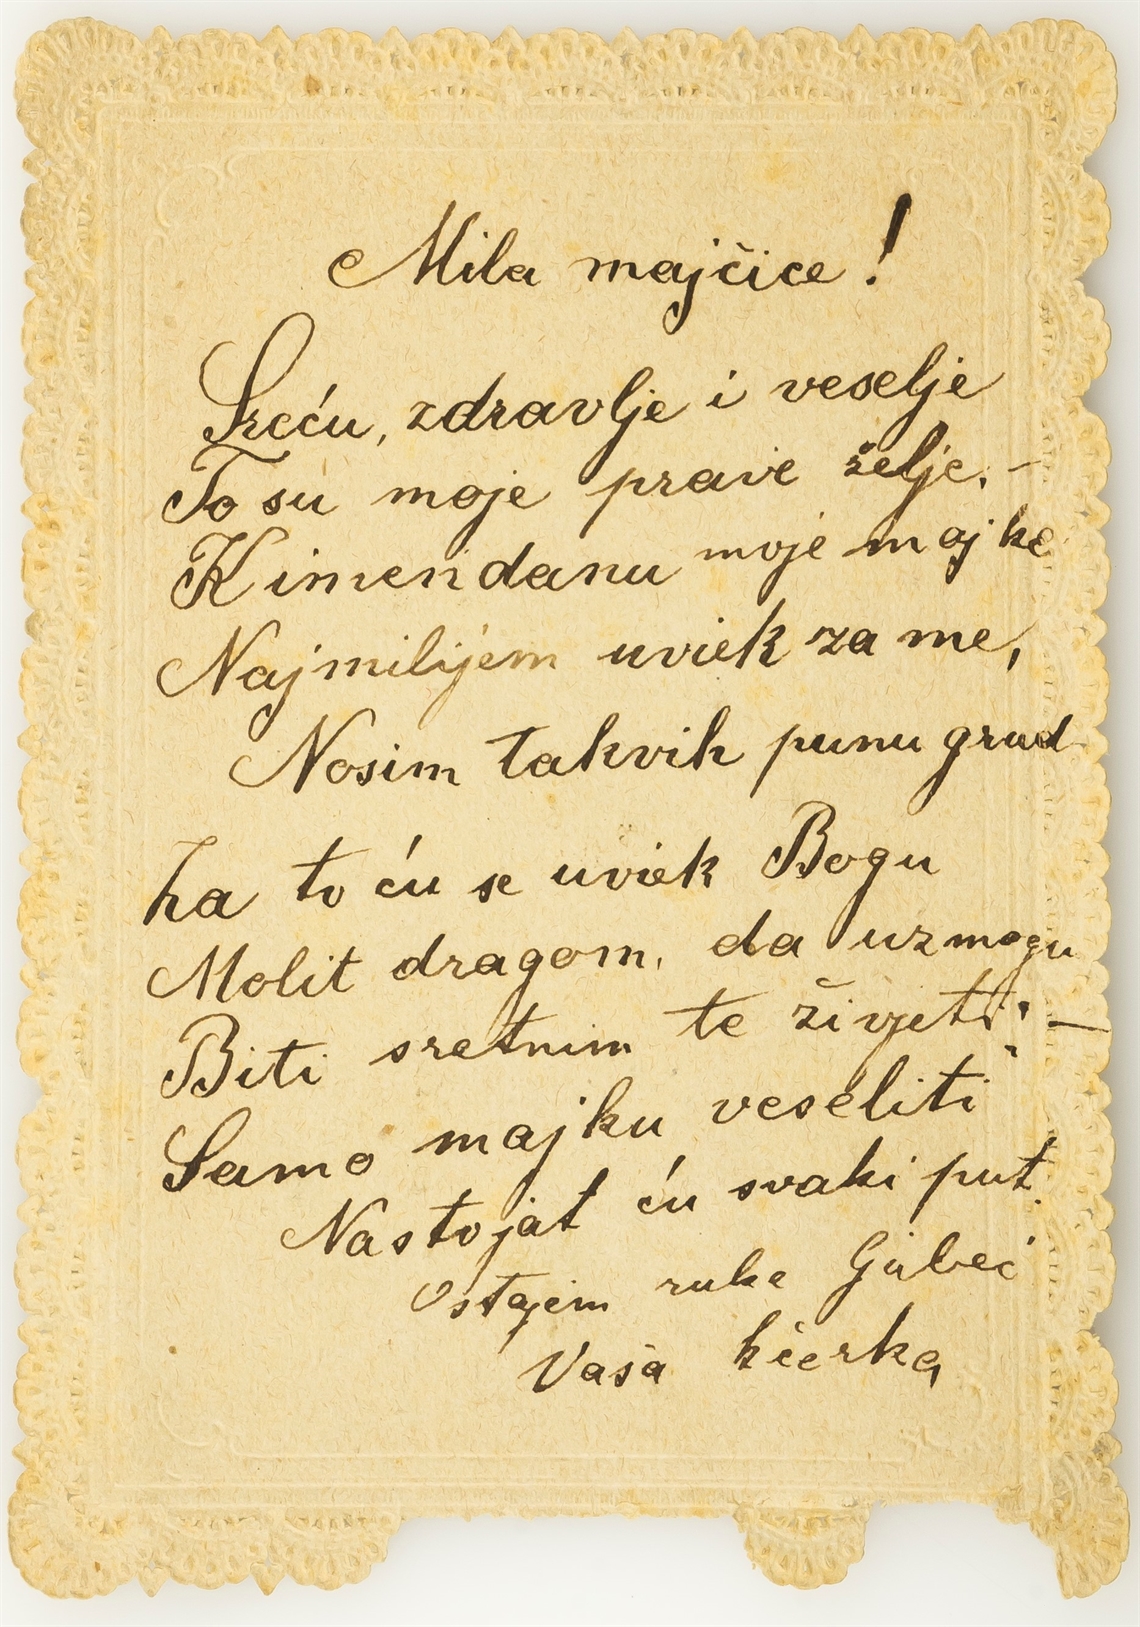 Mila majčice!
Sreću, zdravlje i veselje
To su moje prave želje. –
K imendanu moje majke
Najmilijem uviek za me,
Nosim takvih punu grud
Za to ću se uviek Bogu
Molit dragom, da uzmogu
Biti sretnim te živjeti; –
Samo majku veseliti
Nastojat ću svaki put.
Ostajem ruke ljubeć
Vaša kćerka